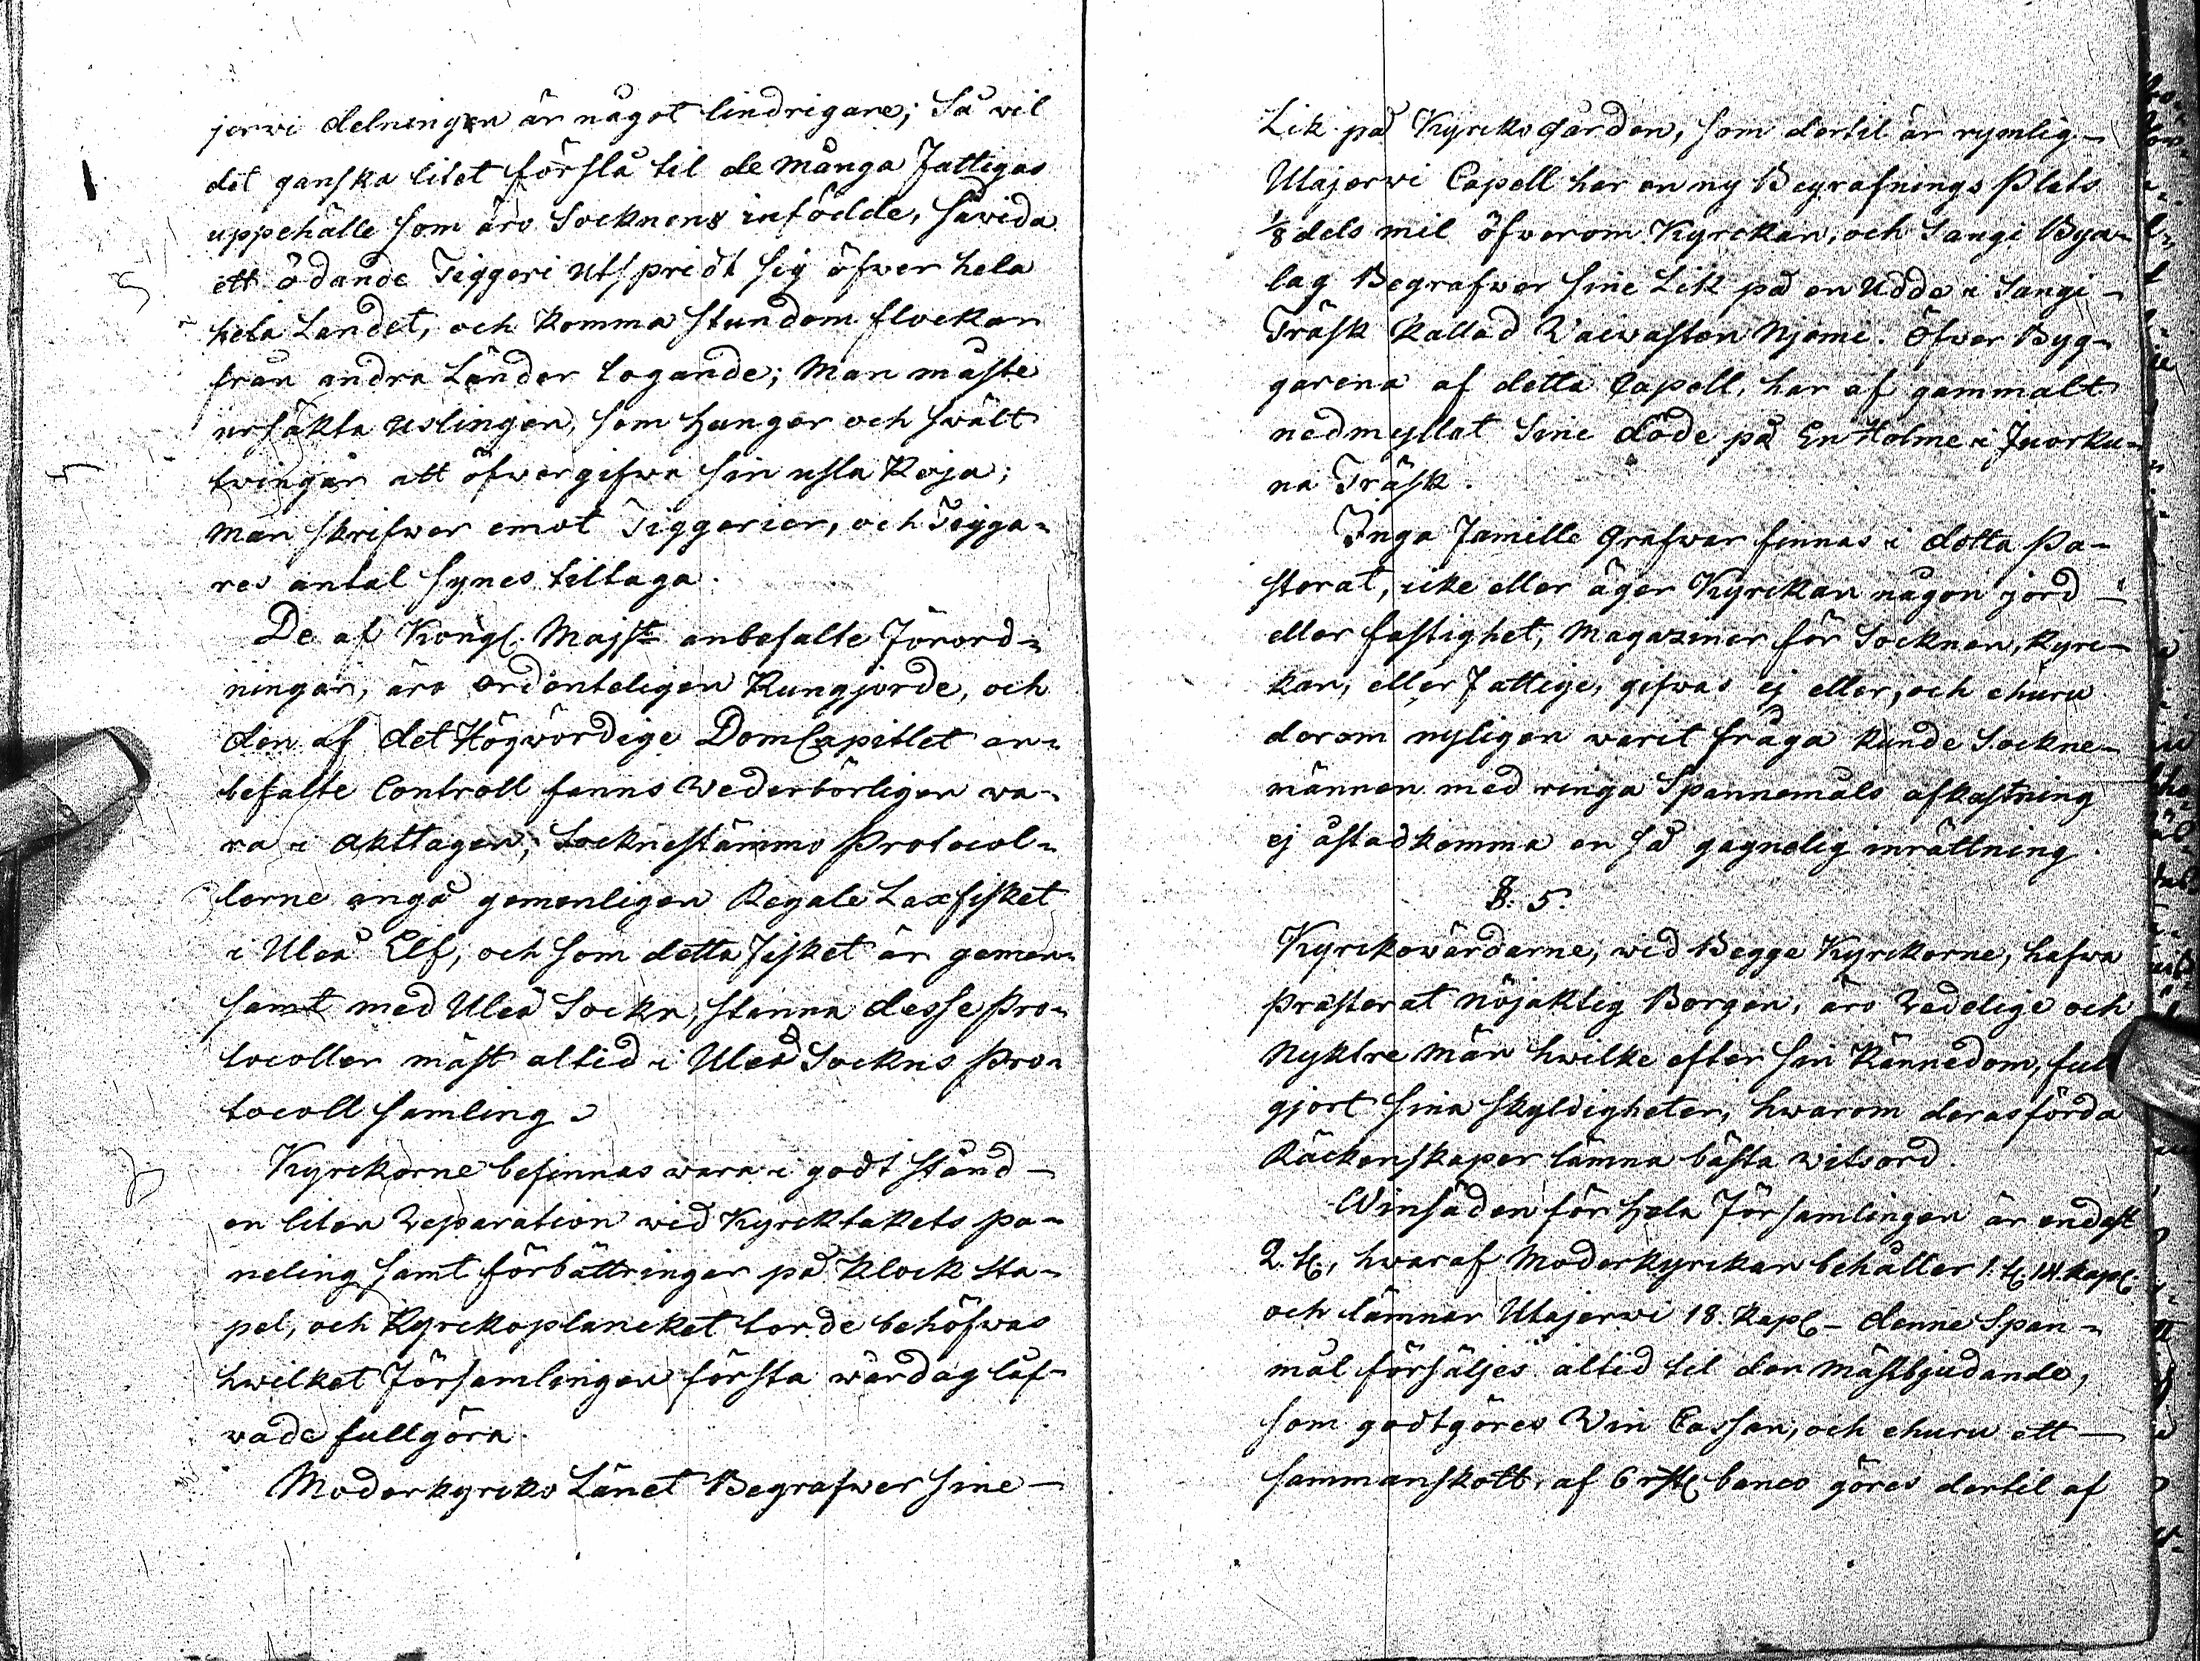 jerwi delningen är något lindrigare; Så wil
det ganska litet förslå til de många Fattigas
uppehälle som äro Socknens infödde, såwida
ett ödande Tiggeri utspridt sig öfwer hela
hela Landet, och komma stundom flockar
från andra Länder togande; Man måste
ursäkta uslingen, som hunger och swält
twingar att öfwergifwa sin usla Koja;
man skrifwer emot Tiggerier, och Tigga=
res antal synes tiltaga.
De af Kongl. Majst. anbefalte Förord=
ningar, äro ordenteligen Kungjorde, och
den af det Högwördige DomCapitlet an=
befalte Controll fanns Wederbörligen wa=
ra i akttagen; Socknestämmo Protocol=
lerne angå gemenligen Regale Laxfisket
i Uleå Elf, och som detta Fisket är gemen=
samt med Uleå Sockn, stanna desse Pro=
tocoller mäst altid i Uleå Sockns Pro=
tocoll samling.
Kyrckorne befinnas wara i godt stånd —
en liten Reparation wid Kyrcktakets pa=
neling samt förbättringar på Klock sta=
pel, och Kyrckoplancket torde behöfwas
hwilket Församlingen första wårdag låf=
wade fullgöra.
Moderkyrcko Länet Begrafwer sine —
Lik på Kyrckogården, som dertil är rymlig —
Utajerwi Capell har en ny Begrafnings Plats
1/8 dels mil öfwerom Kyrckan, och Sangi Bya=
lag Begrafwer sine Lik på en Udde i Sangi —
Träsk kallad Waiwasten Njemi. Öfwer Byg=
garena af detta Capell, har af gammalt
nedmyllat Sine döde på En Holme i Juorku=
na Träsk.
Inga Famille Grafwar finnas i detta Pa=
storat, icke eller äger Kyrckan någon jord —
eller fastighet, Magaziner för Socknen, Kyrc=
kan, eller Fattige, gifwas ej eller, och ehuru
derom nyligen warit fråga kunde Sockne=
männen med ringa Spannemåls afkastning
ej åstadkomma en så gagnelig inrättning.
§. 5.
Kyrckowärdarne, wid Begge Kyrckorne, hafwa
præsterat nöjaktig Borgen, äro Redelige och
Nyktre män hwilke efter sin Kännedom, full
gjort sina skyldigheter, hwarom deras förda
Räckenskaper lämna bästa witsord.
Winsäden för hela Församlingen är endast
2. t͠t, hwaraf Moderkyrckan behåller 1. t͠t 14. kapp
och lämnar Utajerwi 18. kapp — denne Span=
mål försäljes altid til den mästbjudande,
som godtgöres Win Cassan, och ehuru ett —
sammanskott, af 6 rdl banco göres dertil af